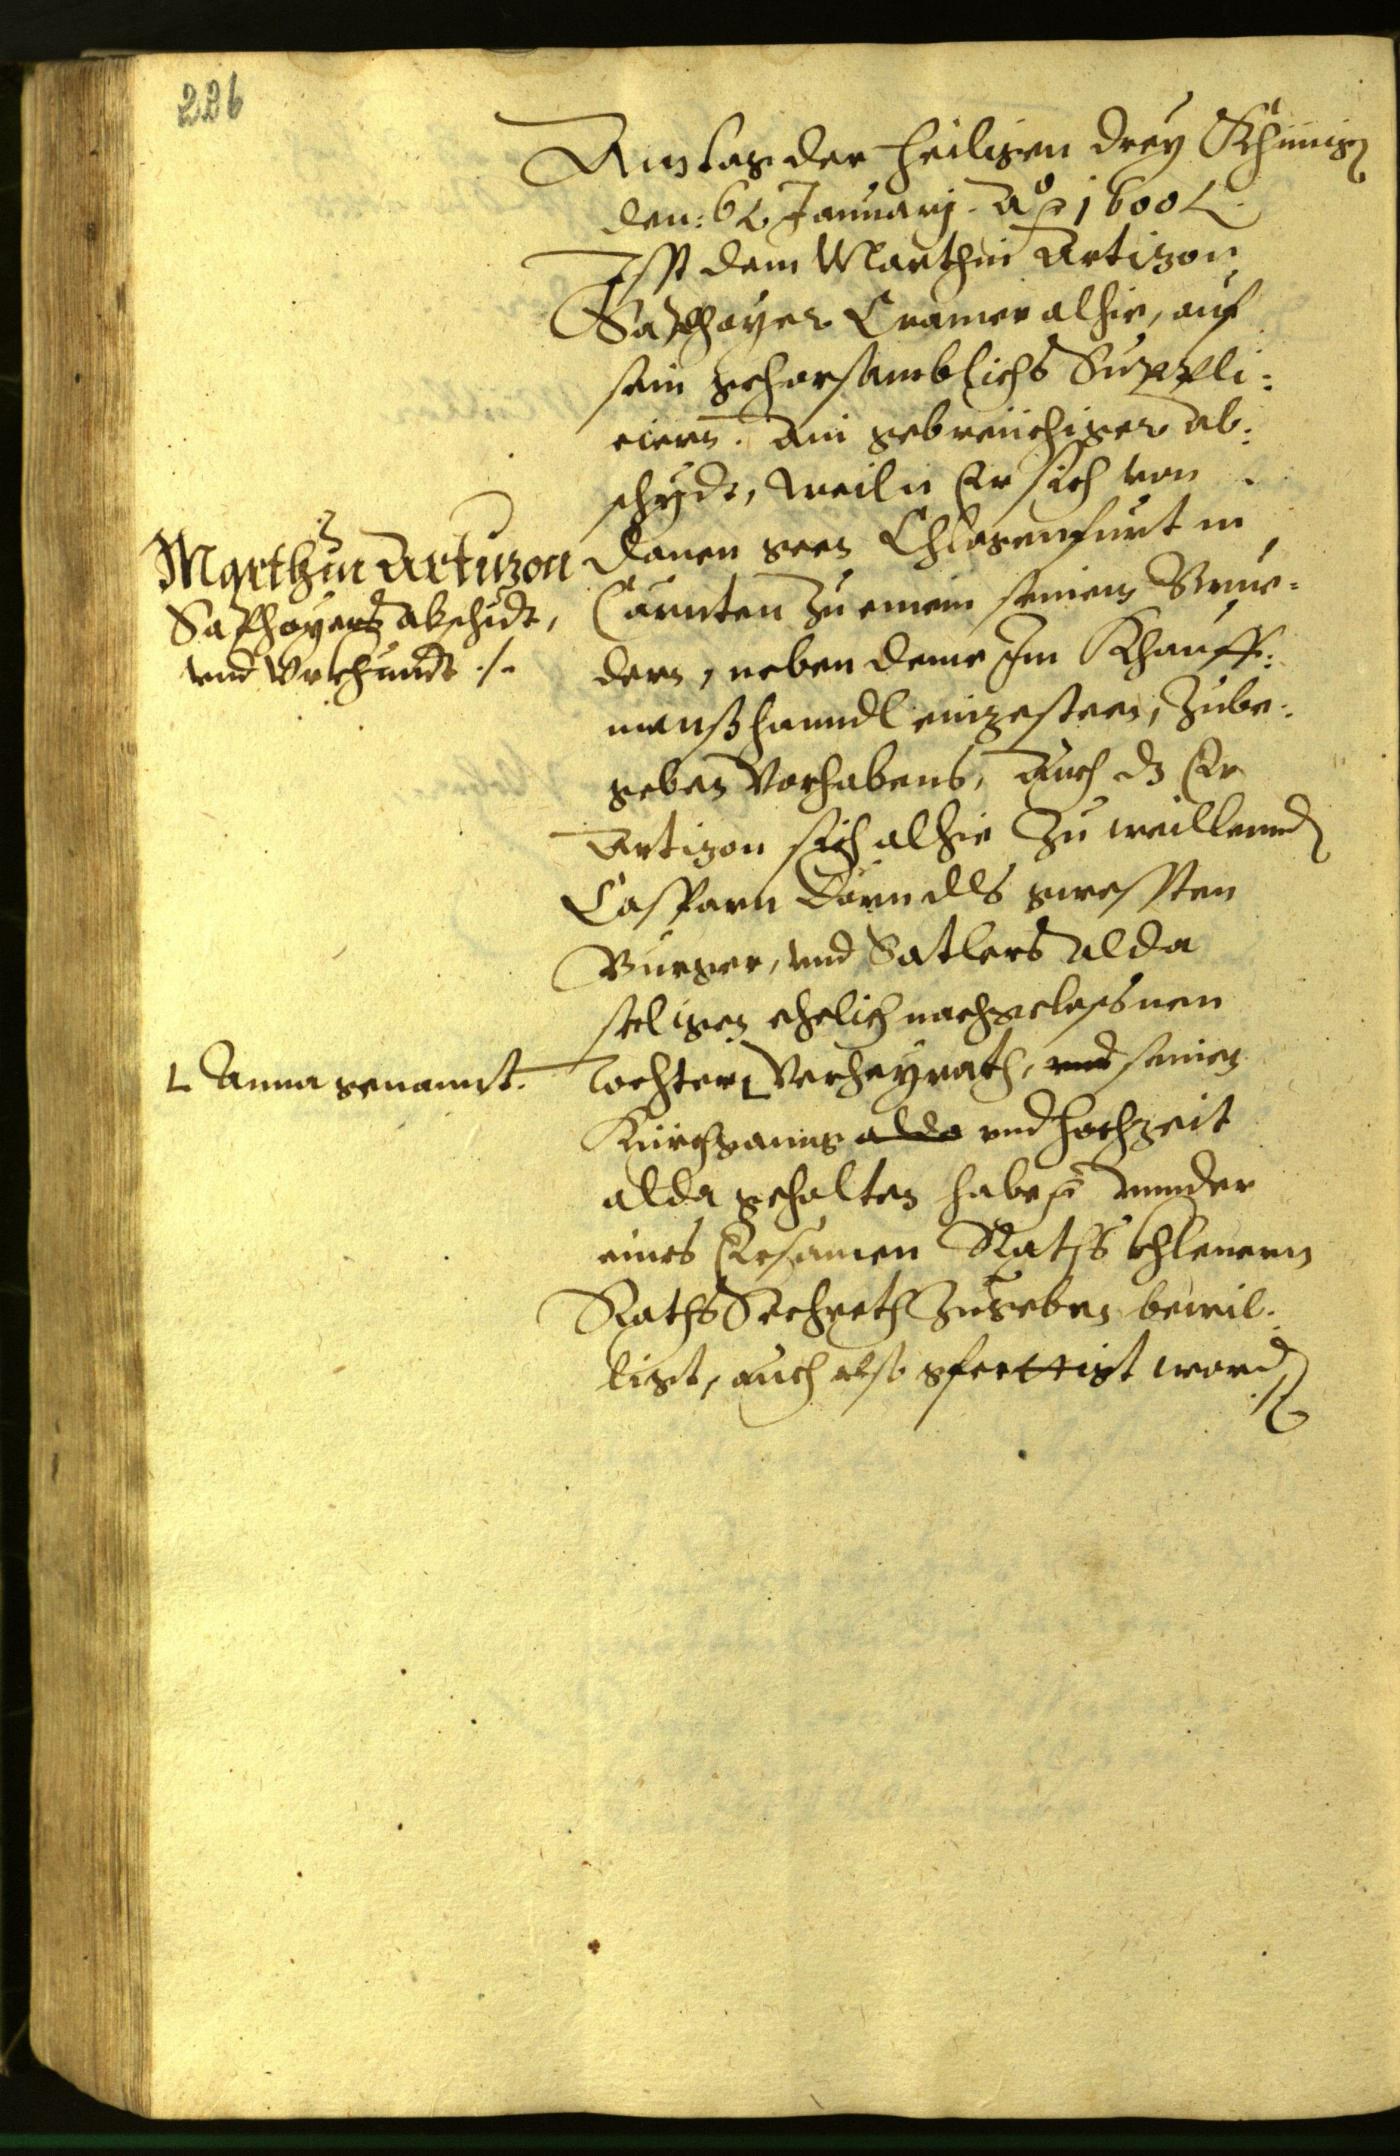 226
Am tag der heiligen drey Khünig
den: 6. Januarj. Ao 1600
Ist dem Marthin Artizon
Saphoyer Cramer alhie, auf
sein gehorsambliches Suppli:
ciern. ain gebreüchiger ab:
schidt, weiln Er sich von
danen geen Chlagenfurt in
Cärnten zu einem seinem Brue:
dern, neben deme Im Khauff:
manßhanndl einzesteen, zube:
geben Vorhabens, Auch dz Er
Artizon sich alhie zu weillennd
Casparn Dorndls gewesten
Burger, vnd Satlers alda
seligen ehelich nachgelaßnen
Tochter Verheyrath, vnd seinen
Kürchganng alda vnd hochzeit
alda gehalten habe vnnder
eines Ersamen Raths khlenern
Raths Sechreth zugeben bewil:
ligt, auch also gferttigt word
Marthin Artizon
Saphoyers abschidt,
vnd Vrkhundt ./.
Anna genannt.